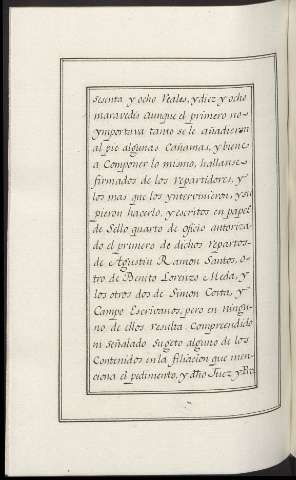 sesenta y ocho Reales, y diez y ocho
maravedis aunque el primero no-
ymportava tanto se le añadieron
al pie algunas Cañamas, y biene
a Componer lo mismo, hallanse
firmados de los repartidores, y
los mas que los yntervinieron, y su
pieron hacerlo, y escritos en papel
de Sello quarto de oficio autoriza-
do el primero de dichos repartos-
de Agustin Ramon Santos, o-
tro de Benito Lorenzo Meda, y
los otros dos de Simon Costa, y
Campo Escrivanos, pero en ningu-
no de ellos resulta Comprendido
ni señalado Sugeto alguno de los
Contenidos en la filiacion que men-
ciona el pedimento, y dho Juez y Re